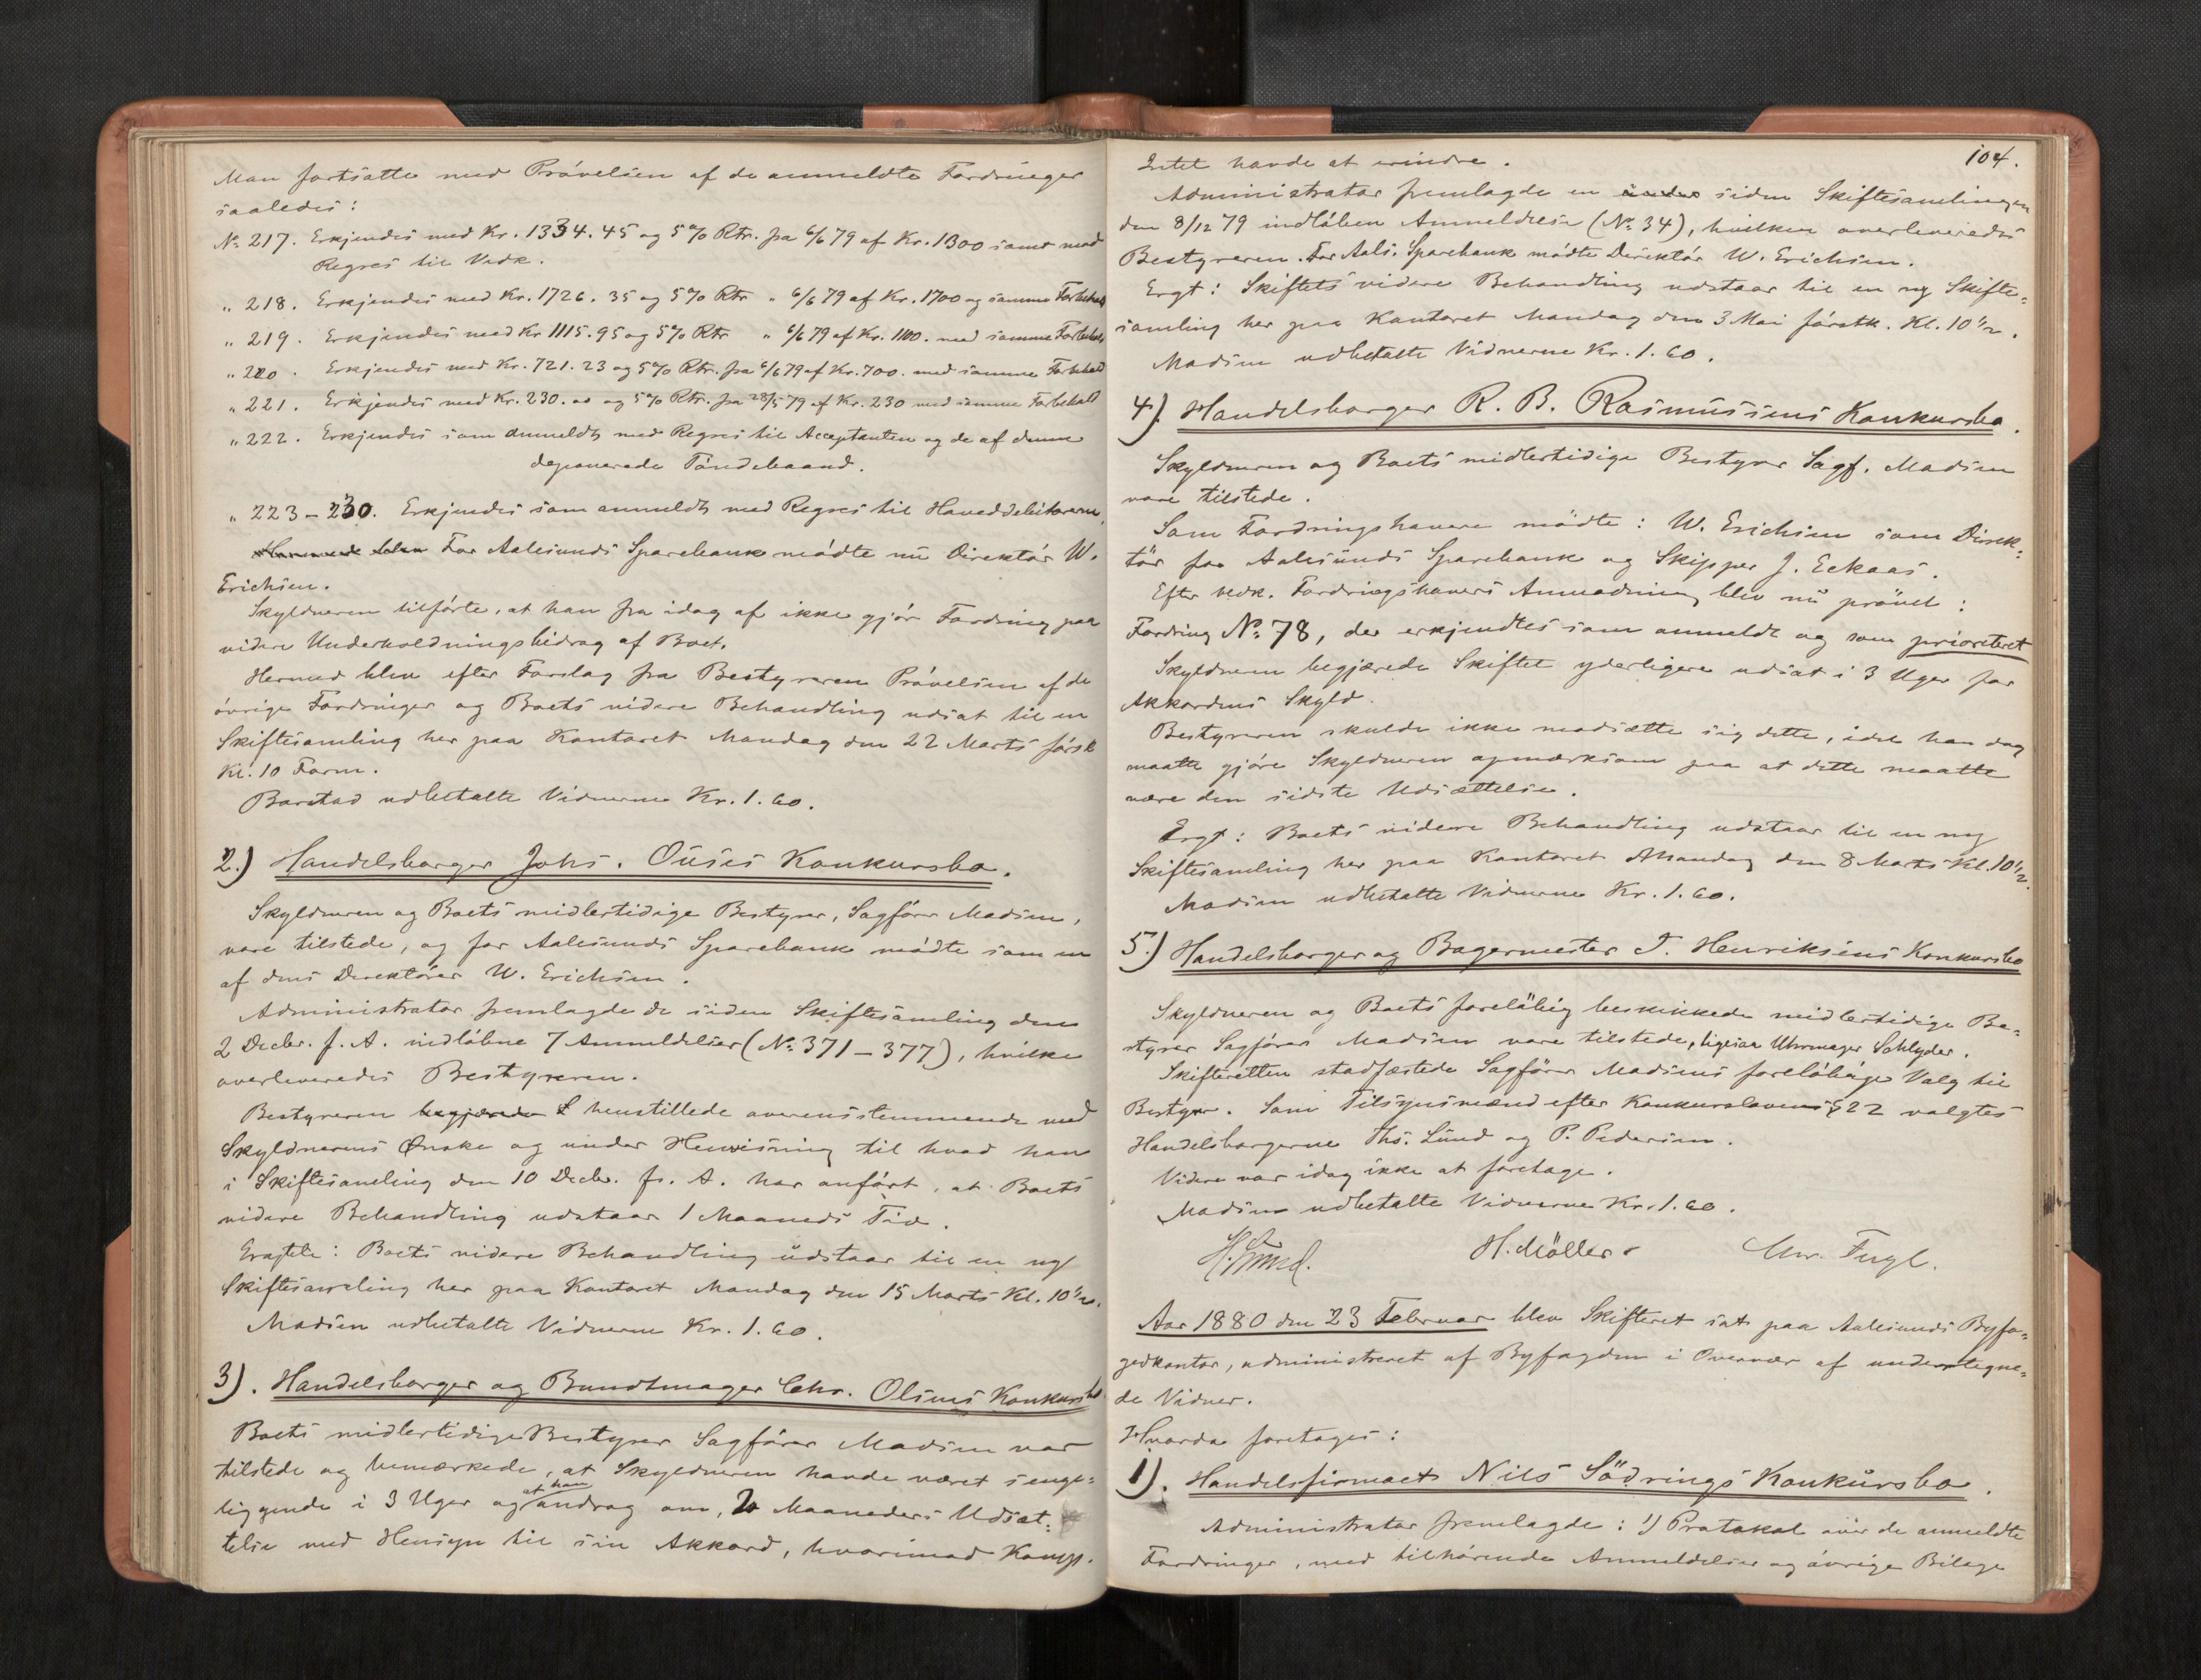 Man fortsatte med Prövelsen af de anmeldte Fordringer
saaledes:
No 217. Erkjendes med Kr. 1334.45 og 5% Rtr. fra 6/6 79 af Kr. 1300 samt med
Regres til Vedk.
" 218. Erkjendes med Kr. 1726.35 og 5% Rtr " 6/6 79 af Kr. 1700 og samme Forbehold
" 219. Erkjendes med Kr 1115.95 og 5% Rtr " 6/6 79 af Kr. 1100. med samme Forbehold
" 220. Erkjendes med Kr. 721.23 og 5% Rtr. fra 6/6 79 af Kr. 700. med samme Forbehold
" 221. Erkjendes med Kr. 230.00 og 5% Rtr. fra 28/5 79 af Kr. 230 med samme Forbehold
" 222. Erkjendes som anmeldt med Regres til Acceptanten og de af denne
deponerede Töndebaand.
" 223-230. Erkjendes som anmeldt med Regres til Hoveddebitorerne.
For Aalesunds Sparebank mödte nu Direktör W.
Erichsen.
Skyldneren tilförte, at han fra idag af ikke gjör Fordring paa
videre Underholdningsbidrag af Boet.
Hermed blev efter Forslag fra Bestyreren Prövelsen af de
övrige Fordringer og Boets videre Behandling udsat til en
Skiftesamling her paa Kontoret Mandag den 22 Marts först k
Kl. 10 Form.
Barstad udbetalte Vidnerne Kr. 1.60.
2.) Handelsborger Johs. Ouses Konkursbo.
Skyldneren og Boets midlertidige Bestyrer, Sagförer Madsen,
vare tilstede, og for Aalesunds Sparebank mödte som en
af dens Direktörer W. Erichsen.
Administrator fremlagde de siden Skiftesamling den
2 Decbr. f. A. indlöbne 7 Anmeldelser (No 371-377), hvilke
overleveredes Bestyreren.
Bestyreren begjærede henstillede overensstemmende med
Skyldnerens Ønske og under Henvisning til hvad han
i Skiftesamling den 10 Decbr. f. A. har anfört, at Boets
videre Behandling udstaar 1 Maaneds Tid.
Eragtede: Boets videre Behandling udstaar til en ny
Skiftesamling her paa Kontoret Mandag den 15 Marts Kl. 10 1/2.
Madsen udbetalte Vidnerne Kr. 1.60.
3). Handelsborger og Bundtmager Chr. Olsens Konkursbo
Boets midlertidige Bestyrer Sagförer Madsen var
tilstede og bemærkede, at Skyldneren havde været senge-
liggende i 3 Uger og at han androg om, 2 Maaneders Udsæt-
telse med Hensyn til sin Akkord, hvorimod Komp.
104.
Intet havde at erindre.
Administrator fremlagde en siden Skiftesamlingen
den 8/12 79 indlöben Anmeldelse (No 34), hvilken overleveredes
Bestyreren. For Aals. Sparebank mödte Direktör W. Erichsen.
Eragt: Skiftets videre Behandling udstaar til en ny Skifte-
samling her paa Kontoret Mandag den 3 Mai förstk. Kl. 10 1/2.
Madsen udbetalte Vidnerne Kr. 1.60.
4). Handelsborger R. B. Rasmussens Konkursbo.
Skyldneren og Boets midlertidige Bestyrer Sagf. Madsen
vare tilstede.
Som Fordringshavere mödte: W. Erichsen som Direk-
tör for Aalesunds Sparebank og Skipper J. Eckaas.
Efter vedk. Fordringshavers Anmodning blev nu prövet:
Fordring No 78, der erkjendtes som anmeldt og som prioriteret
Skyldneren begjærede Skiftet yderligere udsat i 3 Uger for
Akkordens Skyld.
Bestyreren skulde ikke modsætte sig dette, idet han dog
maatte gjöre Skyldneren opmærksom paa at dette maatte
være den sidste Udsættelse.
Eragt: Boets videre Behandling udstaar til en ny
Skiftesamling her paa Kontoret Mandag den 8 Marts Kl. 10 1/2.
Madsen udbetalte Vidnerne Kr. 1.60.
5.) Handelsborger og Bagermester T. Henriksens Konkursbo
Skyldneren og Boets forelöbig beskikkede midlertidige Be-
styrer Sagförer Madsen vare tilstede, ligesaa Uhrmager Schlyder.
Skifteretten stadfæstede Sagförer Madsens forelöbige Valg til
Bestyrer. Som Tilsynsmænd efter Konkurslovens § 22 valgtes
Handelsborgerne Ths. Lund og P. Pedersen.
Videre var idag ikke at foretage.
Madsen udbetalte Vidnerne Kr. 1.60.
H. Möller Chr. Fugl.
Aar 1880 den 23 Februar blev Skifteret sat paa Aalesunds Byfo-
gedkontor, administreret af Byfogden i Overvær af undertegne-
de Vidner.
Hvorda foretoges:
1). Handelsfirmaet Nils Södrings Konkursbo.
Administrator fremlagde: 1) Protokol over de anmeldte
Fordringer, med tilhörende Anmeldelser og övrige Bilage